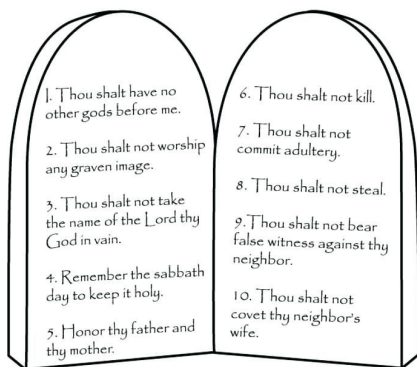 1. Thou shalt have no
other gods before me.
2. Thou shalt not worship
any graven image.
3. Thou shalt not take
the name of the Lord thy
God in vain.
4. Remember the sabbath
day to keep it holy.
5. Honor thy father and
thy mother.
6. Thou shalt not kill.
7. Thou shalt not
commit adultery.
8. Thou shalt not steal.
9. Thou shalt not bear
false witness against thy
neighbor.
10. Thou shalt not
covet thy neighbor's
wife.